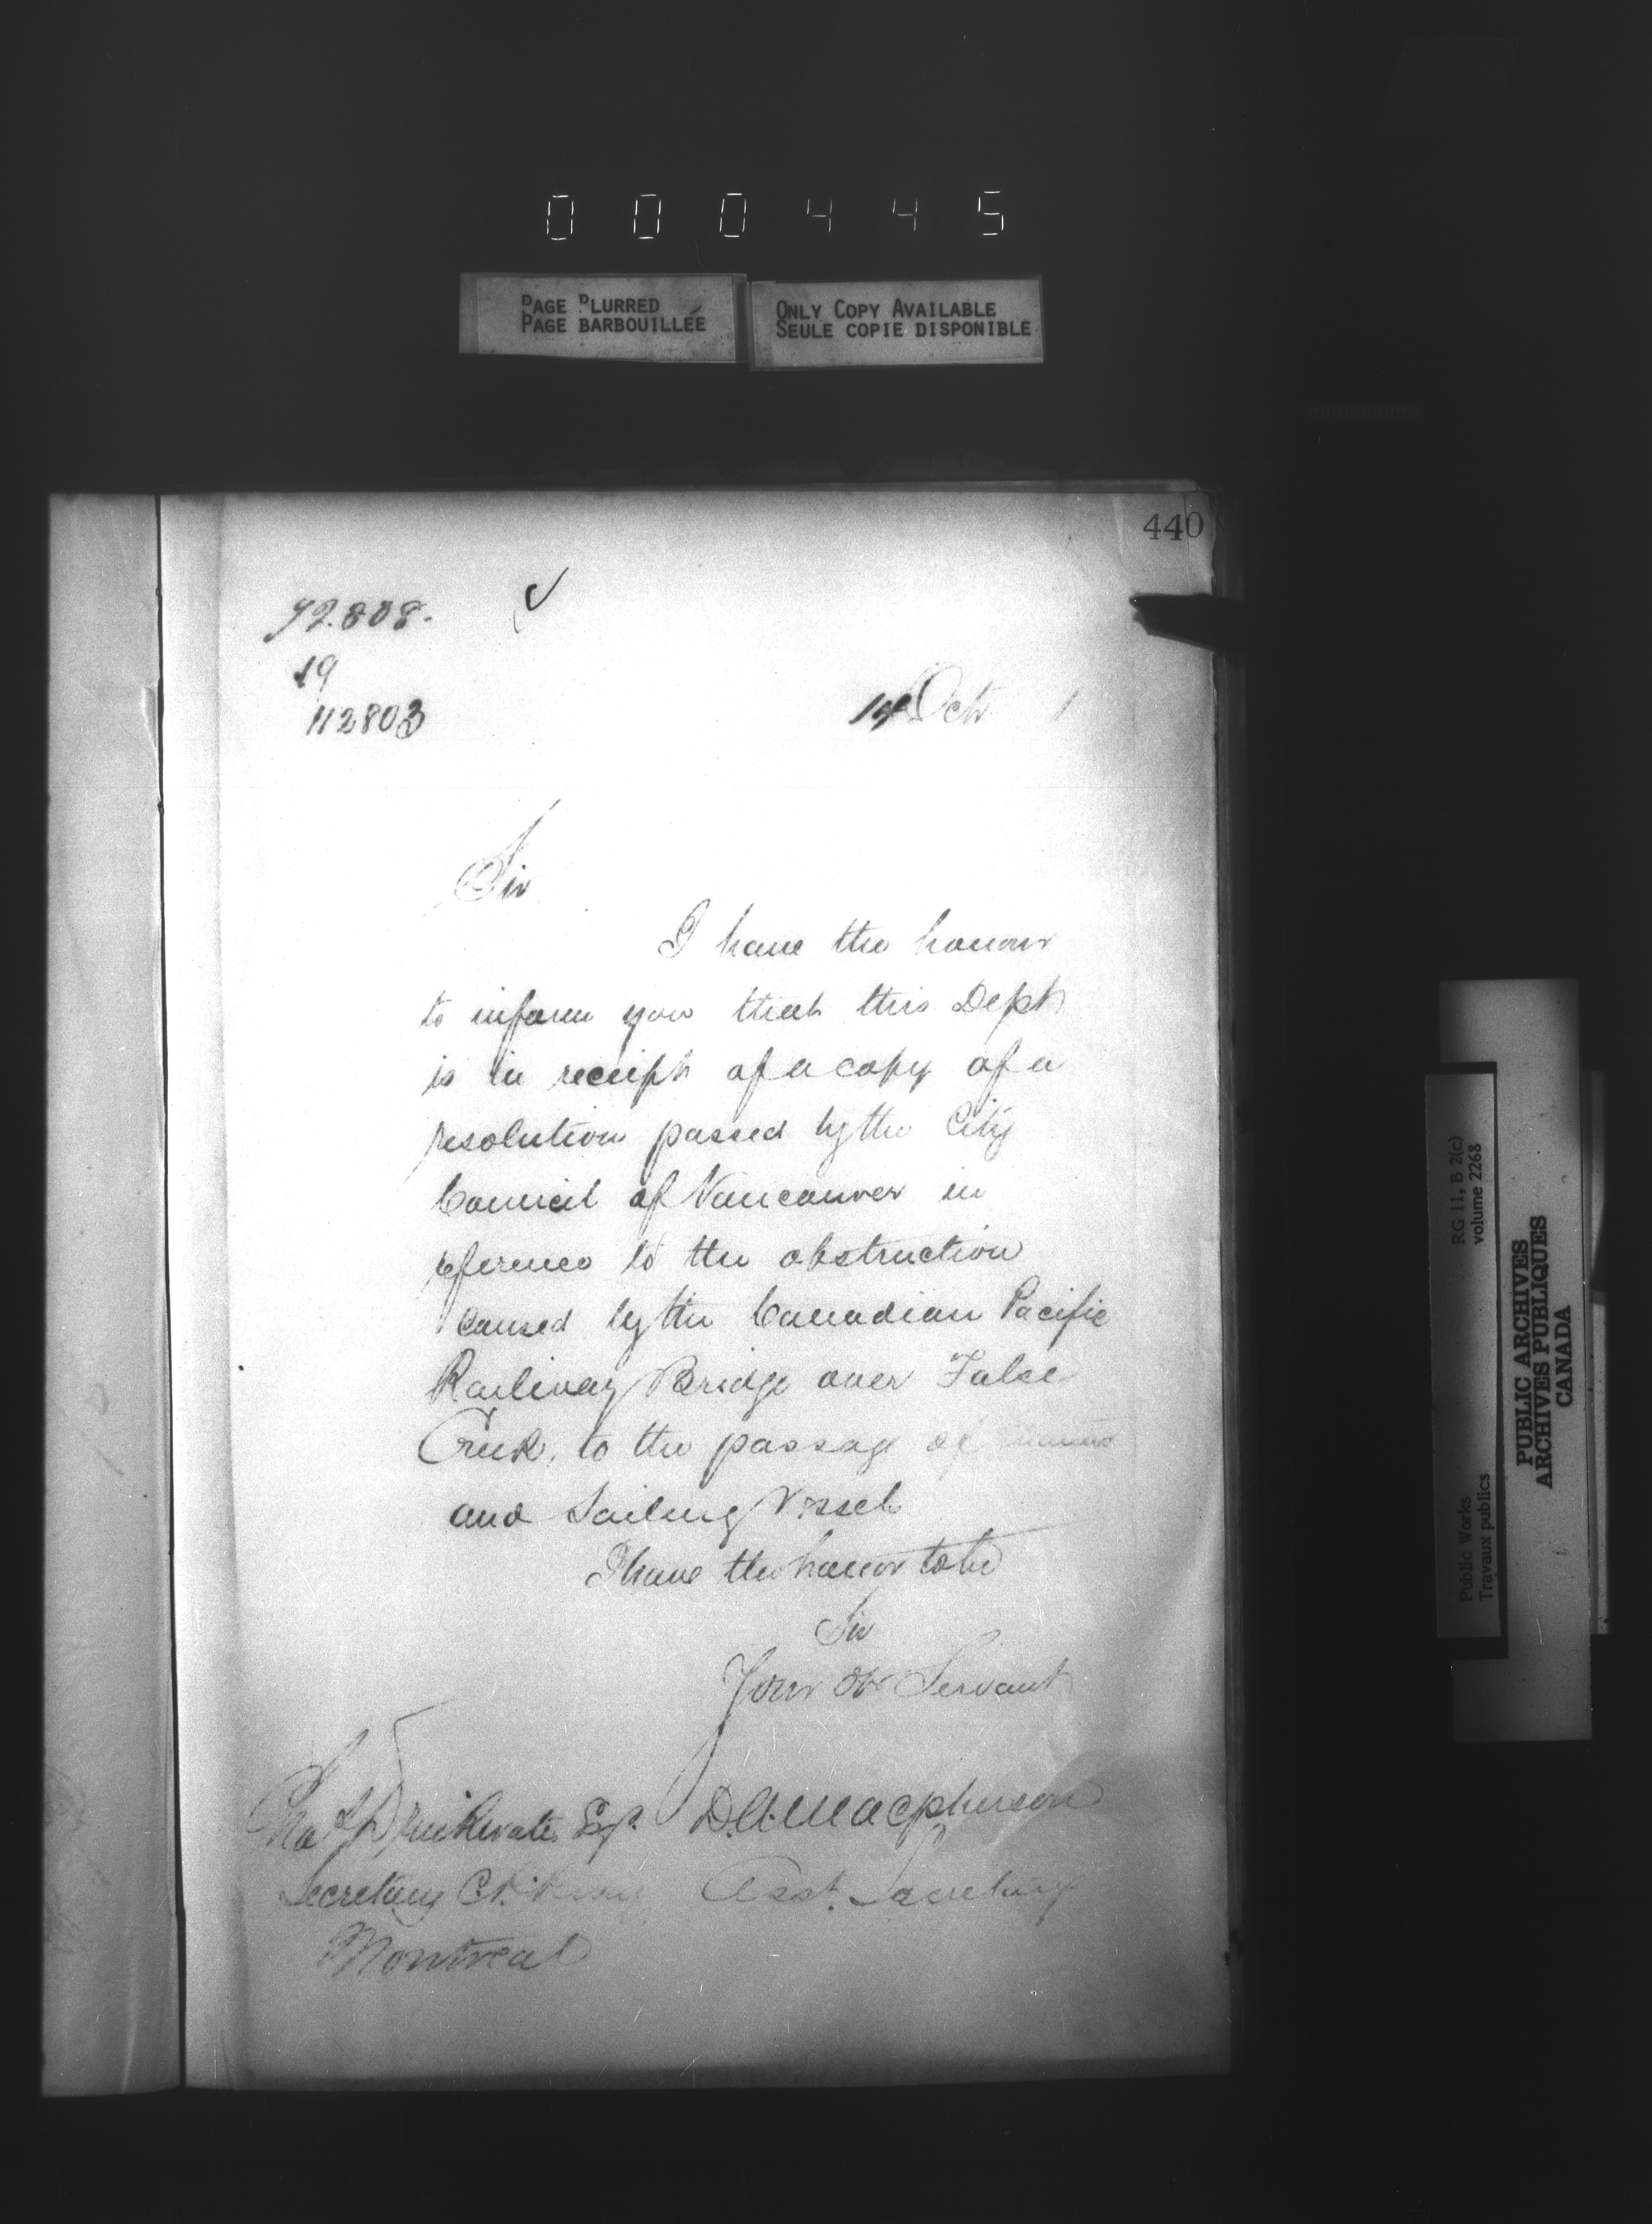 000445
PAGE BLURRED
PAGE BARBOUILLÉE
ONLY COPY AVAILABLE
SEULE COPIE DISPONIBLE
440
92.808.
19
112803
14 Oct 1
Sir
I have the honour
to inform you that this Dept
is in receipt of a copy of a
resolution passed by the City
Council of Vancouver in
reference to the obstruction
caused by the Canadian Pacific
Railway Bridge over False
Creek, to the passage of
and Sailing Vessels
I have the honor to be
Sir
Your Ob Servant
Chas Drinkwater Esq. D.A. Macpherson
Secretary C.P. Asst. Secretary
Montreal
RG 11, B 2(c)
volume 2268
Public Works
Travaux publics
PUBLIC ARCHIVES
ARCHIVES PUBLIQUES
CANADA